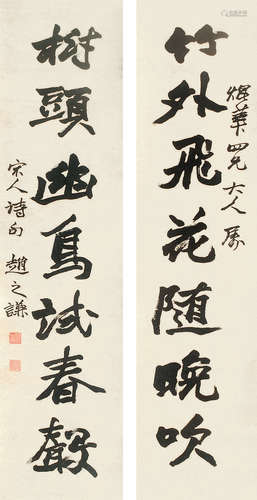 竹外飛花随晚吹
四兄大人属
樹頭幽鳥試春聲
宋人詩句 趙之謙